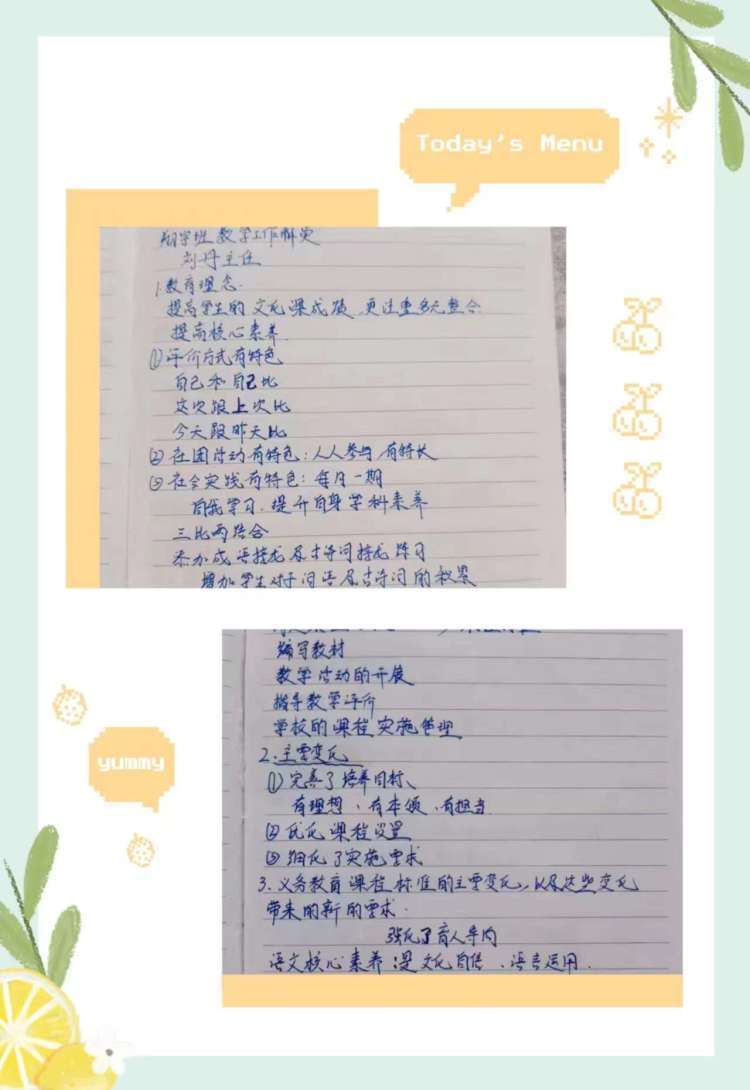 Today's Menu
翔宇班教学工作解读
刘丹主任
1.教育理念.
提高学生的文化课成绩,更注重多元整合
提高核心素养.
①评价方式有特色
自己和自己比
这次跟上次比
今天跟昨天比
②社团活动有特色:人人参与,有特长
③社会实践有特色:每月一期
自我学习,提升自身学科素养
三比两结合
添加成语接龙及古诗词接龙练习
增加学生对于词语及古诗词的积累
编写教材
教学活动的开展
指导教学评价
学校的课程实施管理
2.主要变化
①完善了培养目标、
有理想、有本领、有担当
②优化课程设置
③细化了实施要求
3.义务教育课程标准的主要变化,以及这些变化
带来的新的要求.
强化了育人导向
语文核心素养:是文化自信、语言运用.
yummy